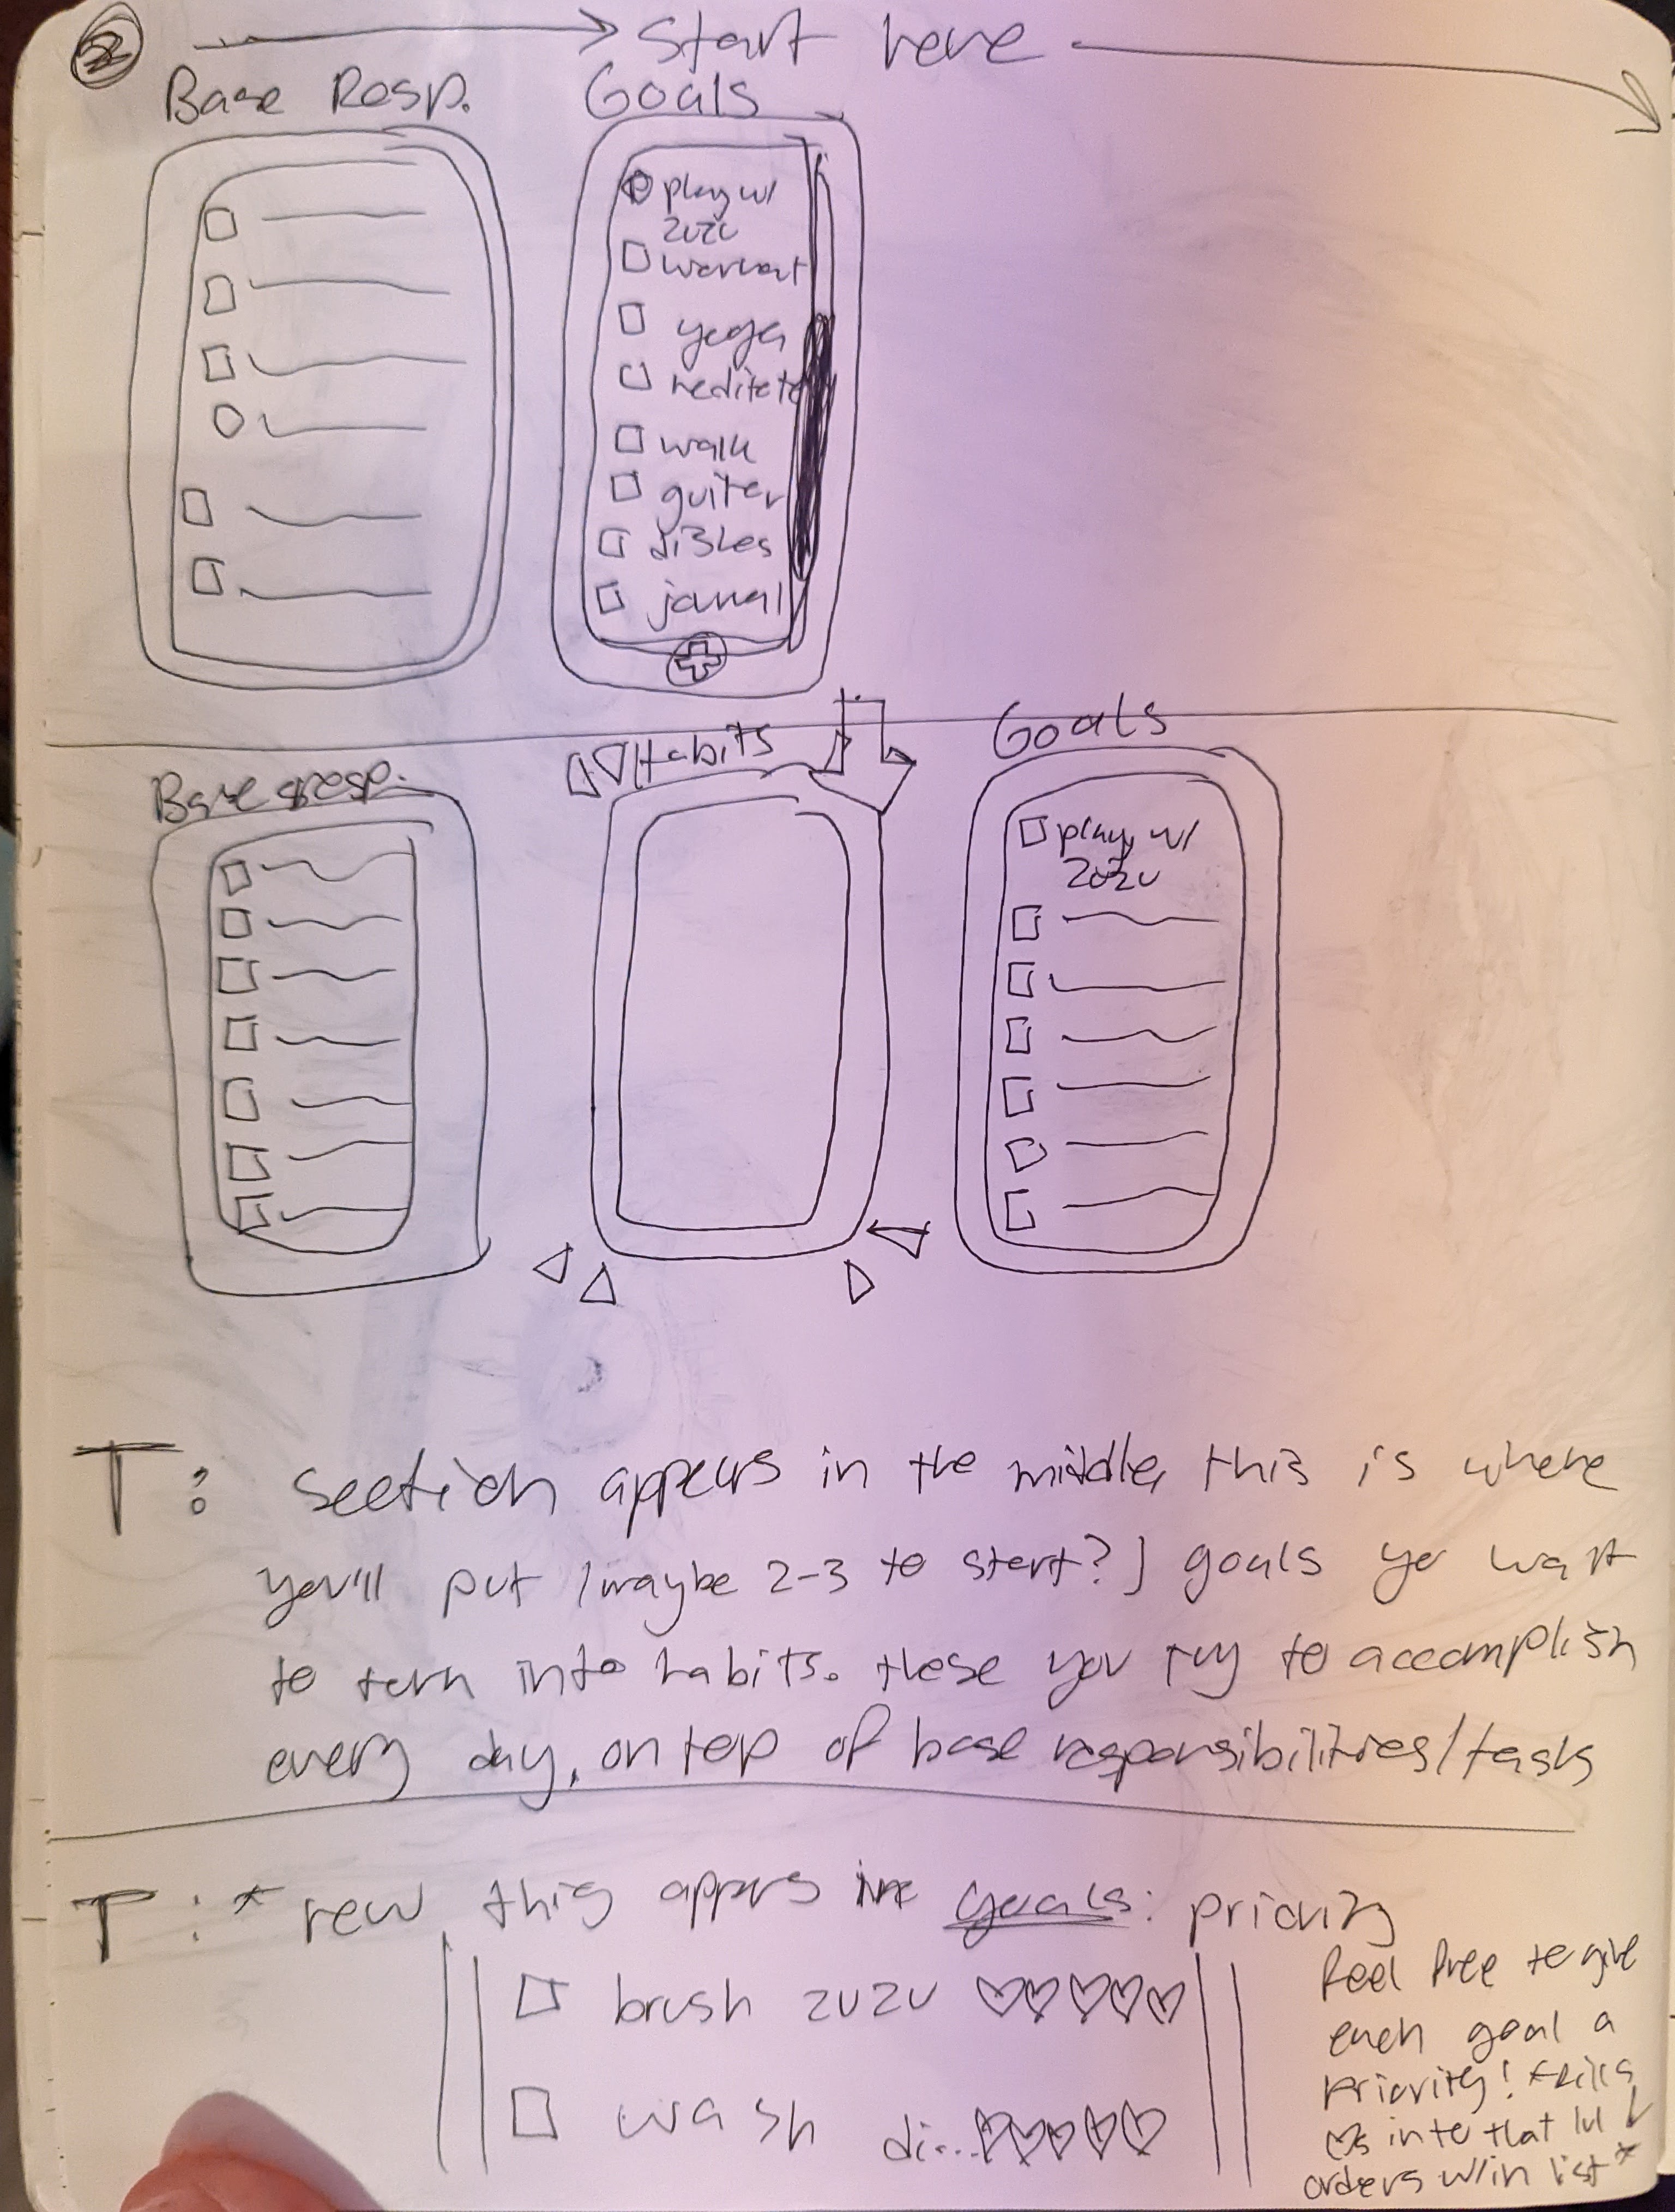 2 Start here
Base Resp. Goals
play w/
zuzu
workout
yoga
meditate
walk
guitar
dishes
journal
Base resp. Habits Goals
play w/
zuzu
T: section appears in the middle, this is where
you'll put (maybe 2-3 to start?) goals yo want
to turn into habits. these you try to accomplish
every day, on top of base responsibilities/tasks
T: * new this appers in goals: priority
brush zuzu ♡♡♡♡♡
wash di... ♡♡♡♡♡
feel free to give
each goal a
priority! *fills
♡s into that lvl ↓
orders w/in list*